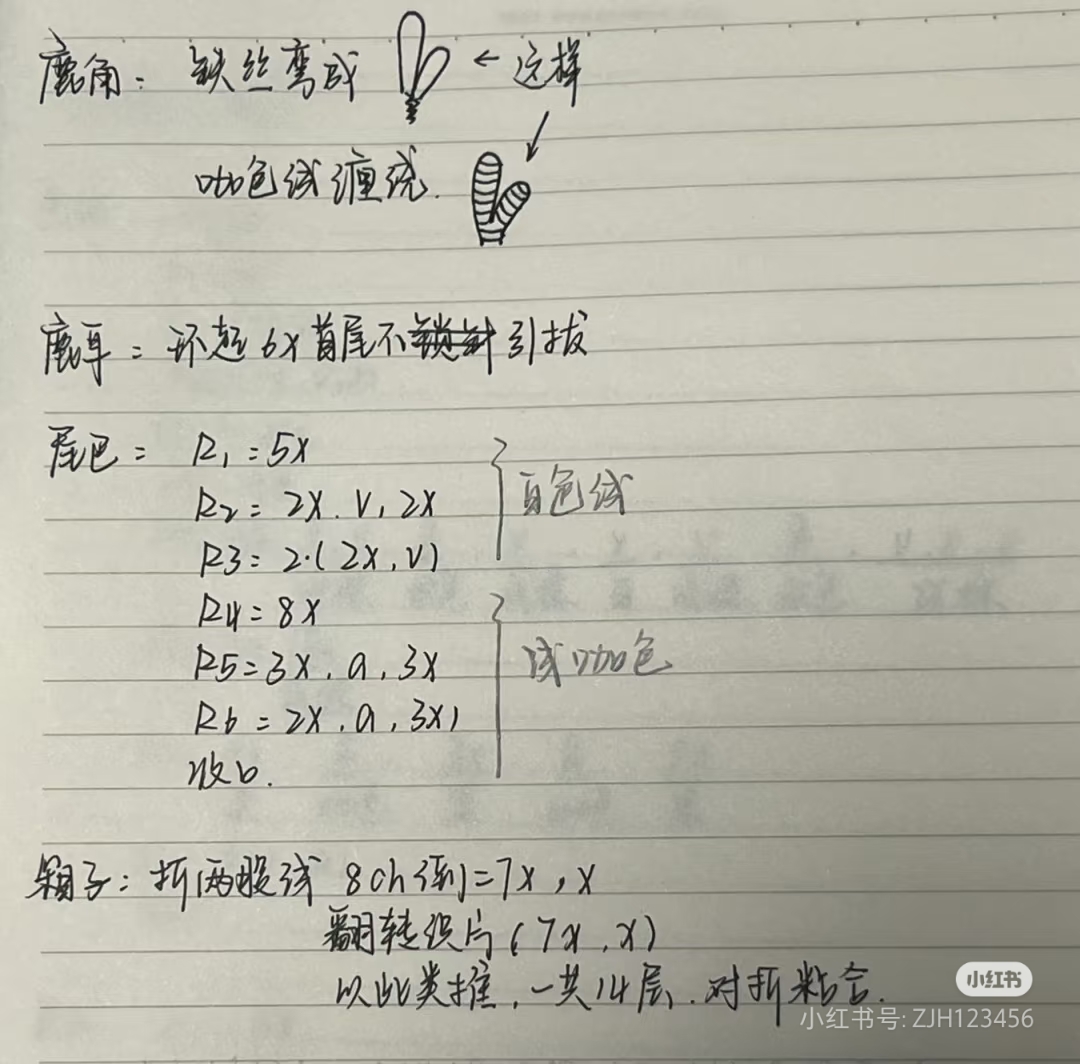 鹿角：铁丝弯成 ← 这样
咖色线缠绕.
鹿耳：环起6X首尾不引拔
尾巴：R1=5X
R2=2X.V,2X
R3=2·(2X,V)
白色线
R4=8X
R5=3X,A,3X
R6=2X,A,3X,
浅咖色
收口.
子：拆两股线 8ch倒=7x,x
翻转织片(7x,x)
以此类推,一共14层.对折粘合.
小红书
小红书号: ZJH123456